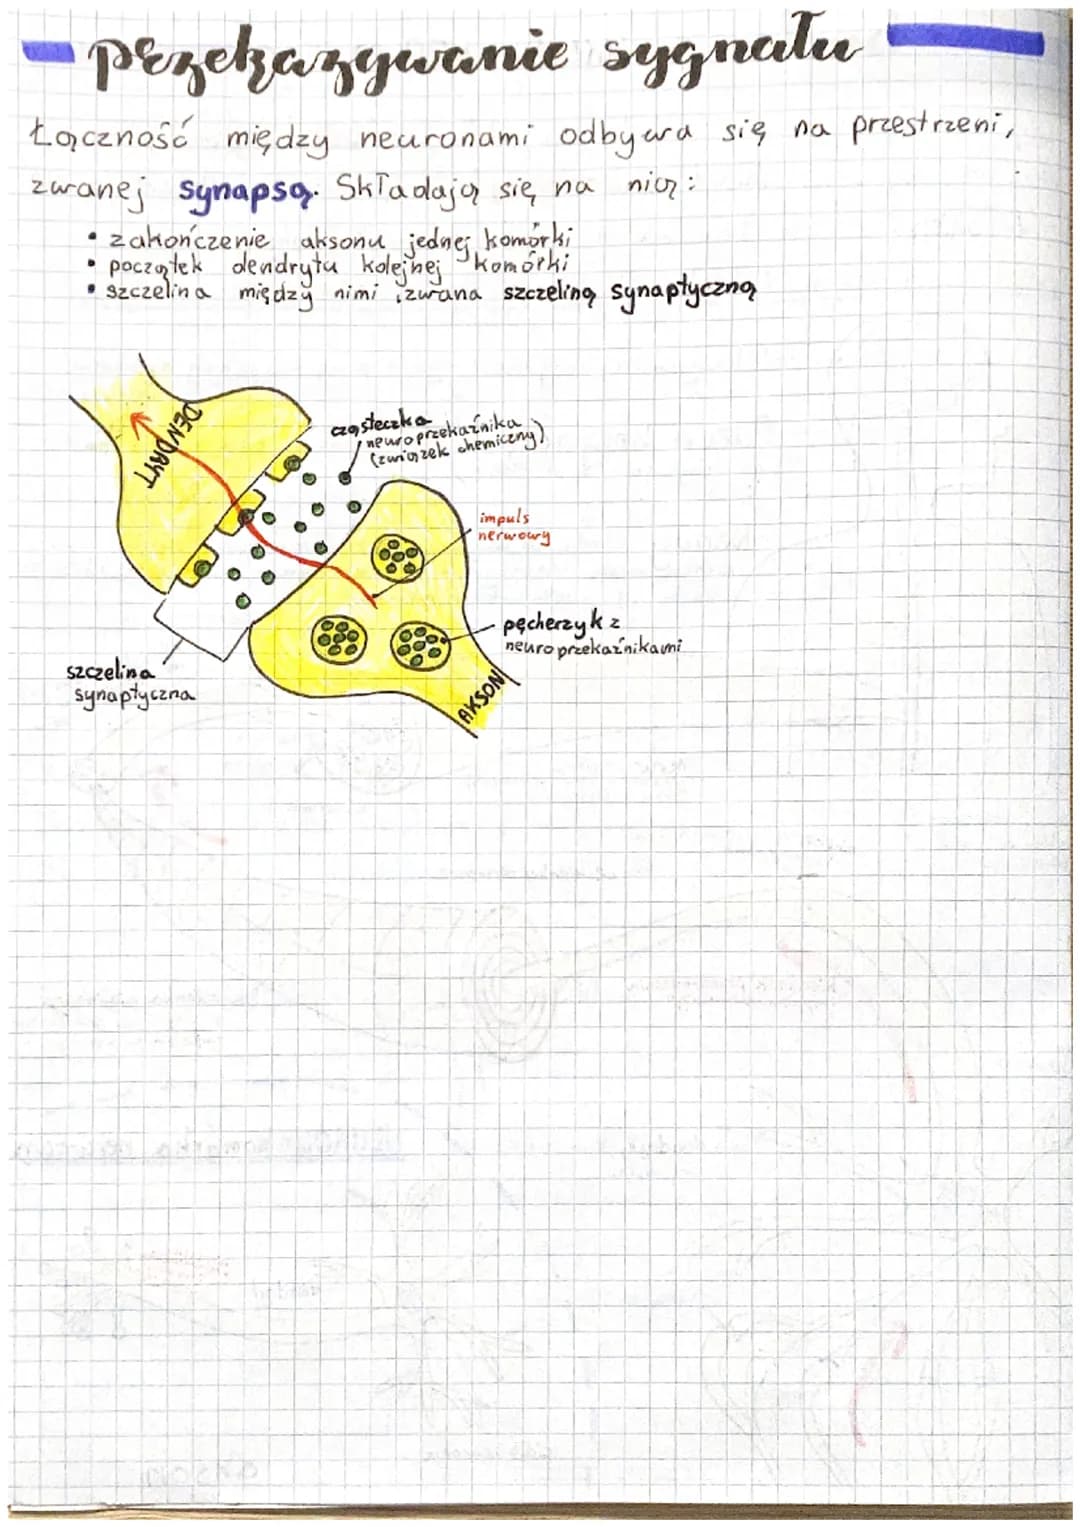 przekazywanie sygnału
Łączność między neuronami odbywa się na przestrzeni,
zwanej synapsą. Składają się na nią:
• zakończenie aksonu jednej komórki
• początek dendrytu kolejnej komórki
• szczelina między nimi, zwana szczeliną synaptyczną
DENDRYT
cząsteczka
neuroprzekaźnika
(związek chemiczny)
impuls
nerwowy
pęcherzyk z
neuroprzekaźnikami
szczelina
synaptyczna
AKSON